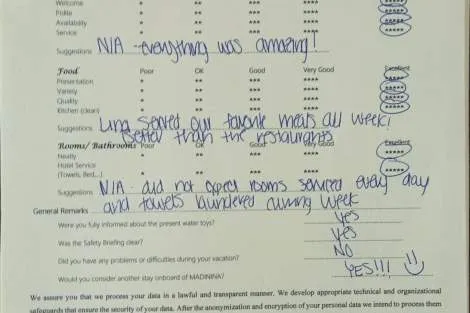 Welcome * ** *** **** *****
Polite * ** *** **** *****
Availability * ** *** **** *****
Service * ** *** **** *****
Suggestions N/A - everything was amazing!
Food Poor OK Good Very Good Excellent
Presentation * ** *** **** *****
Variety * ** *** **** *****
Quality * ** *** **** *****
Kitchen (clean) * ** *** **** *****
Suggestions served our favorite meals all week!
Better than the restaurants
Rooms/ Bathrooms Poor OK Good Very Good Excellent
Neatly * ** *** **** *****
Hotel Service
(Towels, Bed,...) * ** *** **** *****
Suggestions N/A - did not expect rooms serviced every day
General Remarks and towels laundered during week
Were you fully informed about the present water toys? Yes
Was the Safety Briefing clear? Yes
Did you have any problems or difficulties during your vacation? NO
Would you consider another stay onboard of MADININA? YES!!!
We assure you that we process your data in a lawful and transparent manner. We develop appropriate technical and organizational
safeguards that ensure the security of your data. After the anonymization and encryption of your personal data we intend to process them